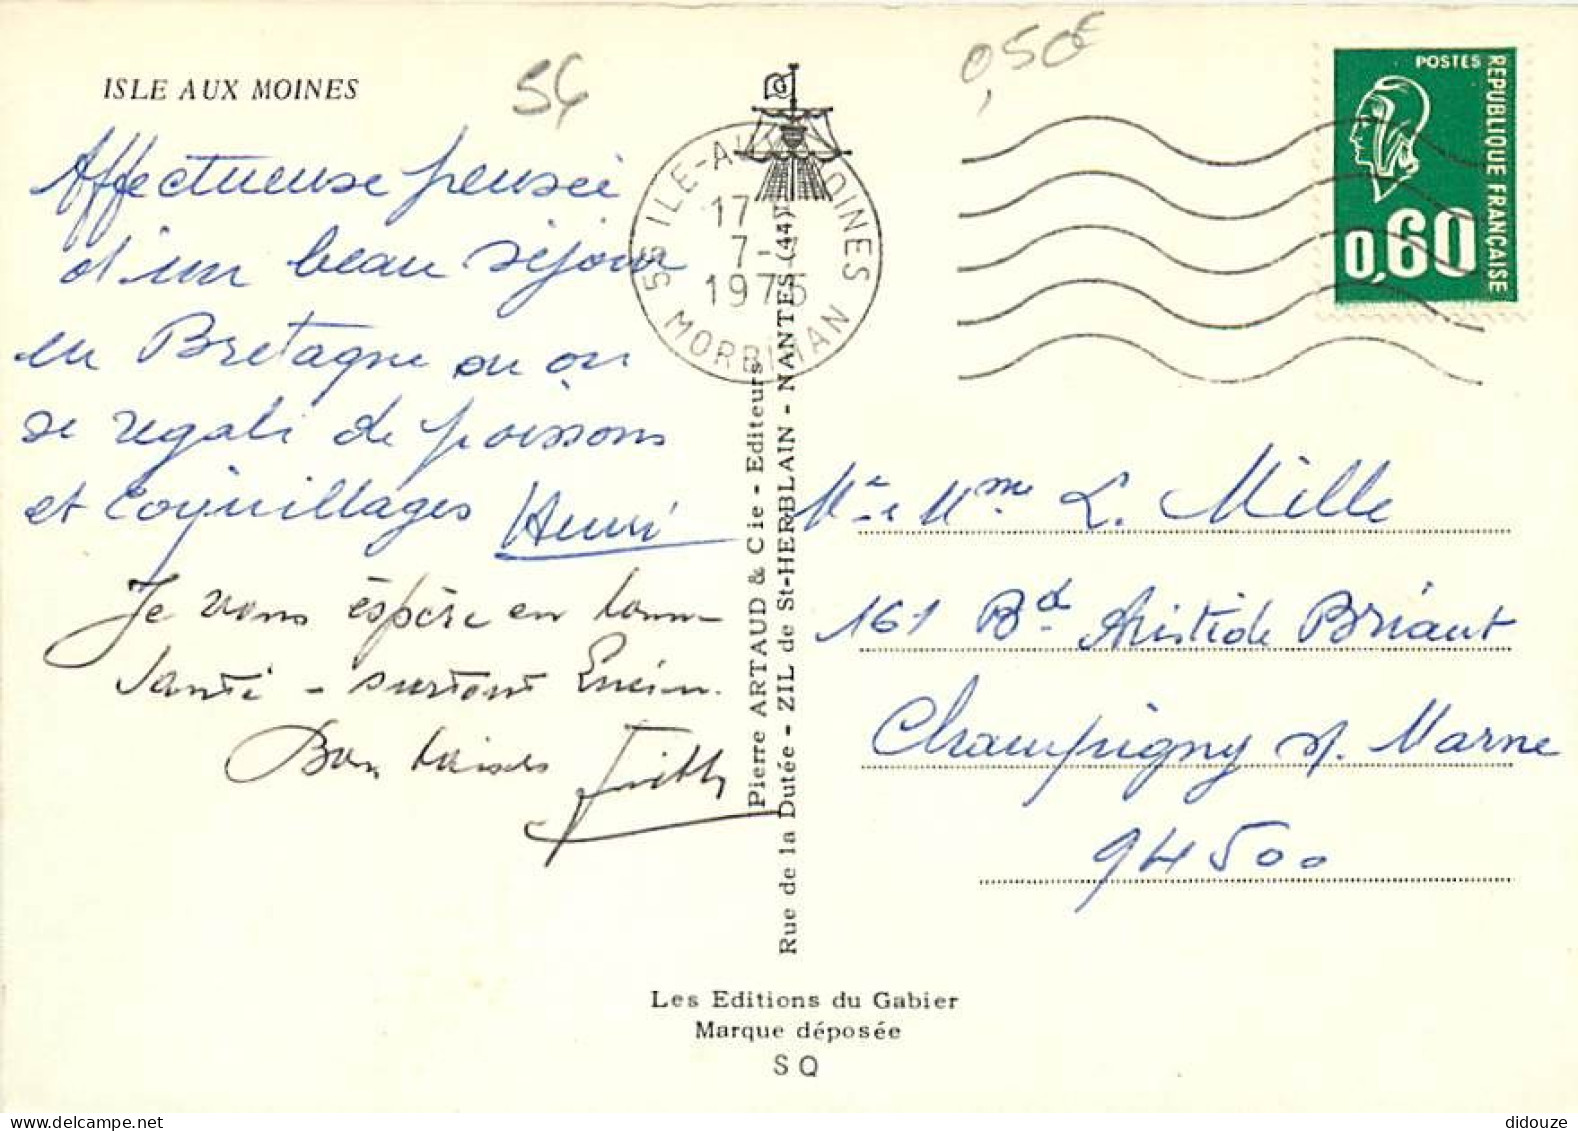 ISLE AUX MOINES
56
0,50€
Affectueuse pensée
d'un beau séjour
en Bretagne ou on
se regale de poissons
et coquillages Henri
Je vous éspère en bonne
santé - surtout
Bon baisers
56 ILE-AUX-MOINES
17
7-
1975
MORBIHAN
POSTES
REPUBLIQUE FRANÇAISE
0,60
Pierre ARTAUD & Cie - Editeurs
Rue de la Dutée - ZIL de St-HERBLAIN - NANTES (44)
Mr e Mme L. Mille
161 Bd Aristide Briant
Champigny s/. Marne
94500
Les Editions du Gabier
Marque déposée
SQ
didouze